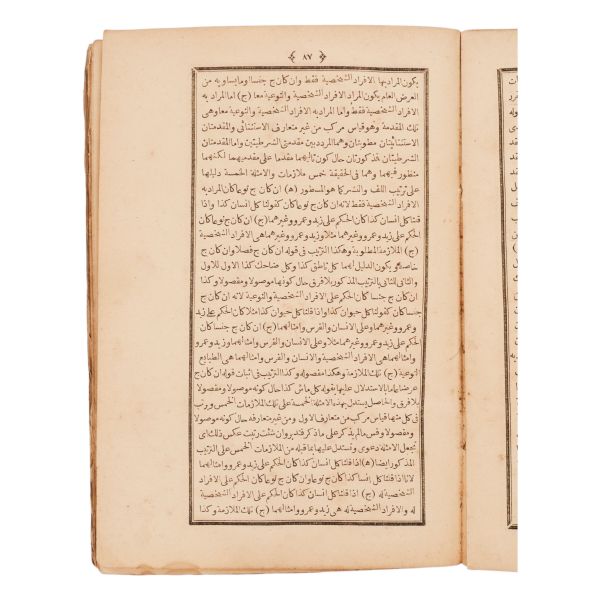 ﴿ ٨٧ ﴾
يكون المراد بها الافراد الشخصية فقط وان كان ج جنسا او ما يساويه من
العرض العام يكون المراد الافراد الشخصية والنوعية معا (ج) اما المراد به
الافراد الشخصية فقط واما المراد به الافراد الشخصية والنوعية معا وهى
تلك المقدمة وهو قياس مركب من غير متعارف الاستثنائى والمقدمتان
الاستثنائيتان مطويتان وهما المرددبين مقدمتى الشرطيتين واما المقدمتان
الشرطيتان المذكورتان حال كون تاليهما مقدما على مقدميهما لكنهما
منظور فيهما وهما فى الحقيقة خمس ملازمات والامثلة الخمسة دليلها
على ترتيب اللف والنشر كما هو المسطور (ه) ان كان ج نوعا كان المراد به
الافراد الشخصية فقط لانه ان كان ج نوعا كان كقولنا كل انسان كذا واذا
قلنا كل انسان كذا كان الحكم على زيد وعمرو وغيرهما (ج) ان كان ج نوعا كان
الحكم على زيد وعمرو وغيرهما مثلا وزيد وعمرو وغيرهما هى الافراد الشخصية
(ج) الملازمة المطلوبة وهكذا الترتيب فى قوله ان كان ج فصلا وان كان ج
خاصة يكون الدليل لهما كل ناطق كذا وكل ضاحك كذا الاول للاول
والثانى للثانى بالترتيب المذكور بلا فرق حال كونها موصولا ومفصولا وكذا
ان كان ج جنسا كان الحكم على الافراد الشخصية والنوعية لانه ان كان ج
جنسا كان كقولنا كل حيوان كذا واذا قلنا كل حيوان كذا مثلا كان الحكم على زيد
وعمرو وغيرهما وعلى الانسان والفرس وامثالهما (ج) ان كان ج جنسا كان
الحكم على زيد وعمرو وغيرهما مثلا وعلى الانسان والفرس وامثالهما وزيد وعمرو
وامثالهما هى الافراد الشخصية والانسان والفرس وامثالهما هى الطبايع
النوعية (ج) تلك الملازمة وهكذا مفصوله وكذا الترتيب فى اثبات قوله ان كان ج
عرضا عاما بالاستدلال عليها بقوله كل ماش كذا حال كونه موصولا ومفصولا
بلا فرق والحاصل يستدل بهذه الامثلة الخمسة على تلك الملازمات الخمس ورتب
فى كل منها قياس مركب من متعارف الاول ومن غير متعارفة حال كونه موصولا
ومفصولا وقس مالم يذكر على ما ذكر فتدبر وان شئت رتبت عكس ذلك اى
تجعل الامثلة دعاوى وتستدل عليها بما قبله من الملازمات الخمس على الترتيب
المذكور ايضا (ه) اذا قلنا كل انسان كذا كان الحكم على زيد وعمرو وامثالهما
لانا اذا قلنا كل انسان كذا كان ج نوعا وان كان ج نوعا كان الحكم على الافراد
الشخصية له (ج) اذا قلنا كل انسان كذا كان الحكم على الافراد الشخصية
له والافراد الشخصية له هى زيد وعمرو وامثالهما (ج) تلك الملازمة وكذا